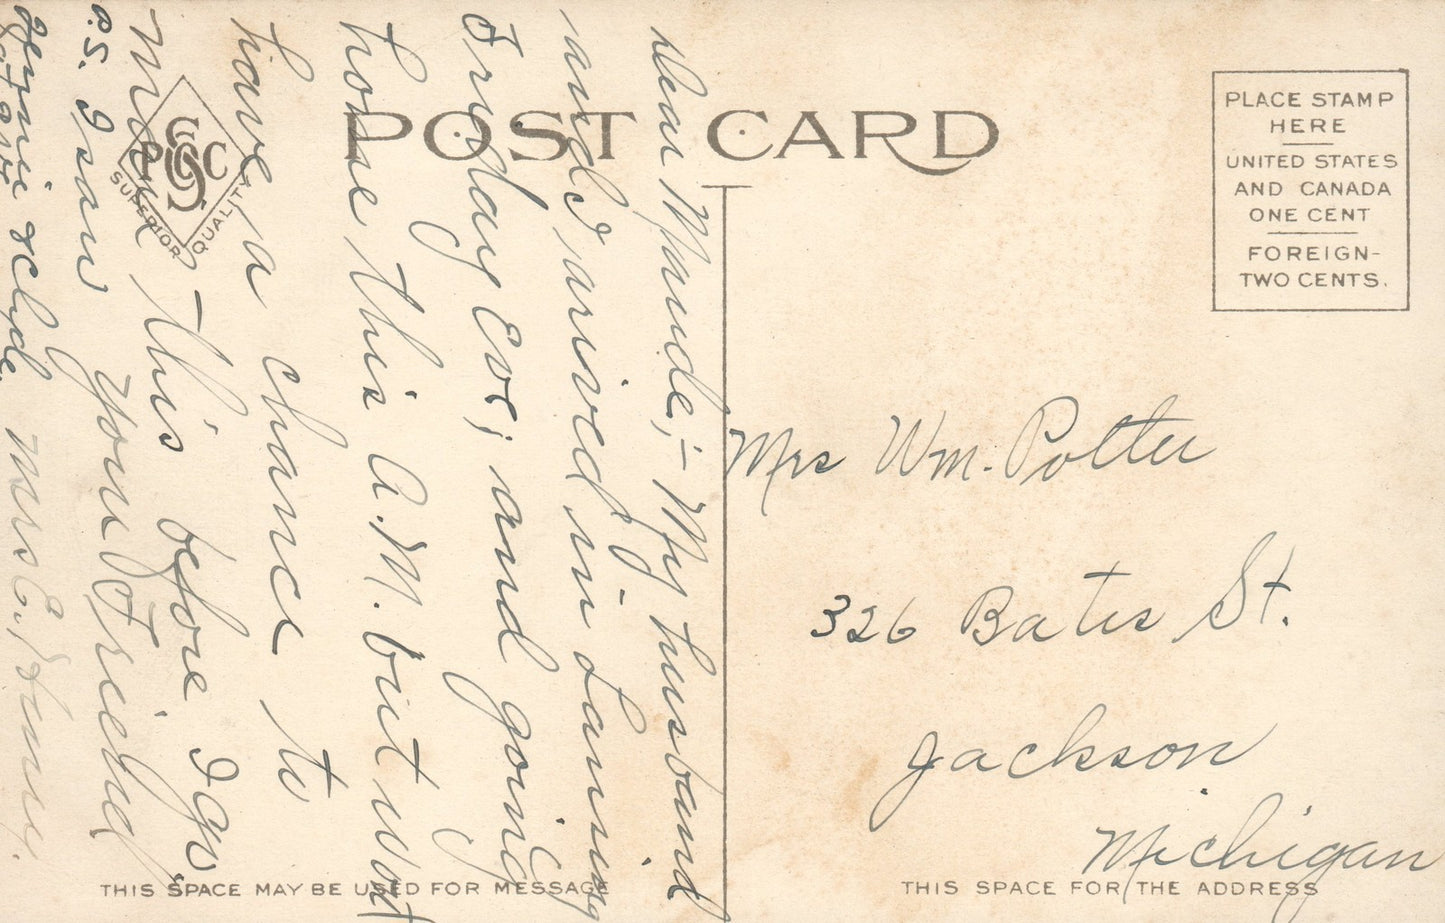 POST CARD
PLACE STAMP
HERE
UNITED STATES
AND CANADA
ONE CENT
FOREIGN-
TWO CENTS.
P C
SUPERIOR QUALITY
Dear Maude;- My husband
and I arived in Lansing
Friday Eve; and going
home this A.M. but wont
have a chance to
mail this before I go
Your Friend
Mrs E.
P.S. I saw
& Clyde.
Mrs Wm. Potter
326 Bates St.
Jackson
Michigan
THIS SPACE MAY BE USED FOR MESSAGE
THIS SPACE FOR THE ADDRESS